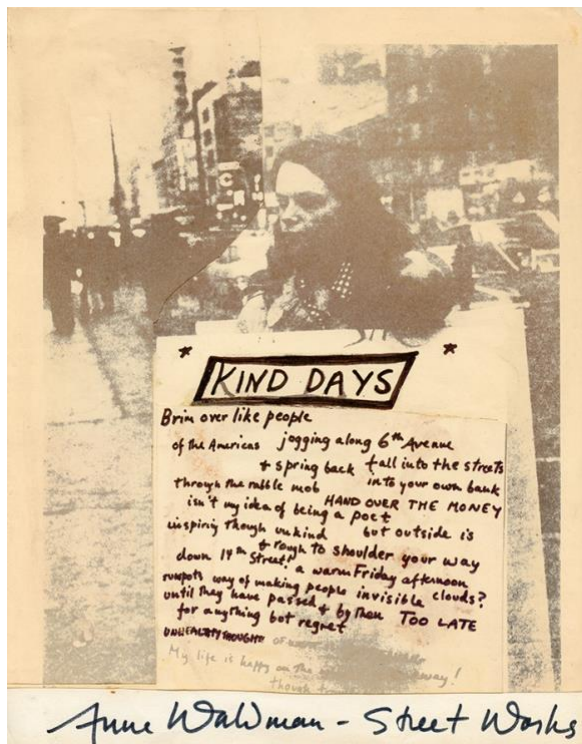 * KIND DAYS *
Brim over like people
of the Americas jogging along 6th Avenue
+ spring back fall into the streets
through the rabble mob into your own bank
isn't my idea of being a poet HAND OVER THE MONEY
inspiring though unkind but outside is
+ rough to shoulder your way
down 14th Street! a warm Friday afternoon
way of making people invisible clouds?
until they have passed + by then TOO LATE
for anything but regret
UNHEALTHY THOUGHT!
My life is happy on the away!
though
Anne Waldman - Street Works